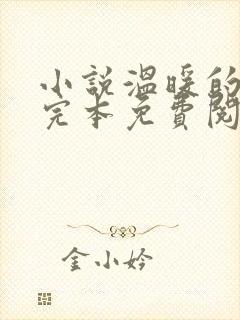 小説溫暖的
完本免費閱
金小妗